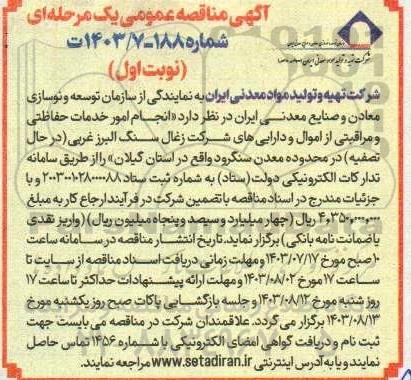 آگهی مناقصه عمومی یک مرحله‌ای
شماره ۱۸۸-۱۴۰۳/۷ت
(نوبت اول)
شرکت تهیه و تولید مواد معدنی ایران به نمایندگی از سازمان توسعه و نوسازی
معادن و صنایع معدنی ایران در نظر دارد «انجام امور خدمات حفاظتی
و مراقبتی از اموال و دارایی های شرکت زغال سنگ البرز غربی (در حال
تصفیه) در محدوده معدن سنگرود واقع در استان گیلان» را از طریق سامانه
تدارکات الکترونیکی دولت (ستاد) به شماره ثبت ستاد ۲۰۰۳۰۰۱۰۲۸۰۰۰۰۸۸ و با
جزئیات مندرج در اسناد مناقصه با تضمین شرکت در فرآیند ارجاع کار به مبلغ
۴,۳۵۰,۰۰۰,۰۰۰ ریال (چهار میلیارد و سیصد و پنجاه میلیون ریال) (واریز نقدی
یا ضمانت نامه بانکی) برگزار نماید. تاریخ انتشار مناقصه در سامانه ساعت
۱۰ صبح مورخ ۱۴۰۳/۰۷/۱۷ و مهلت زمانی دریافت اسناد مناقصه از سایت تا
ساعت ۱۷ مورخ ۱۴۰۳/۰۸/۰۲ و مهلت ارائه پیشنهادات حداکثر تا ساعت ۱۷
روز شنبه مورخ ۱۴۰۳/۰۸/۱۲ و جلسه بازگشایی پاکات صبح روز یکشنبه مورخ
۱۴۰۳/۰۸/۱۳ برگزار می گردد. علاقمندان شرکت در مناقصه می بایست جهت
ثبت نام و دریافت گواهی امضای الکترونیکی با شماره ۱۴۵۶ تماس حاصل
نمایند و یا به آدرس اینترنتی www.setadiran.ir مراجعه نمایند.